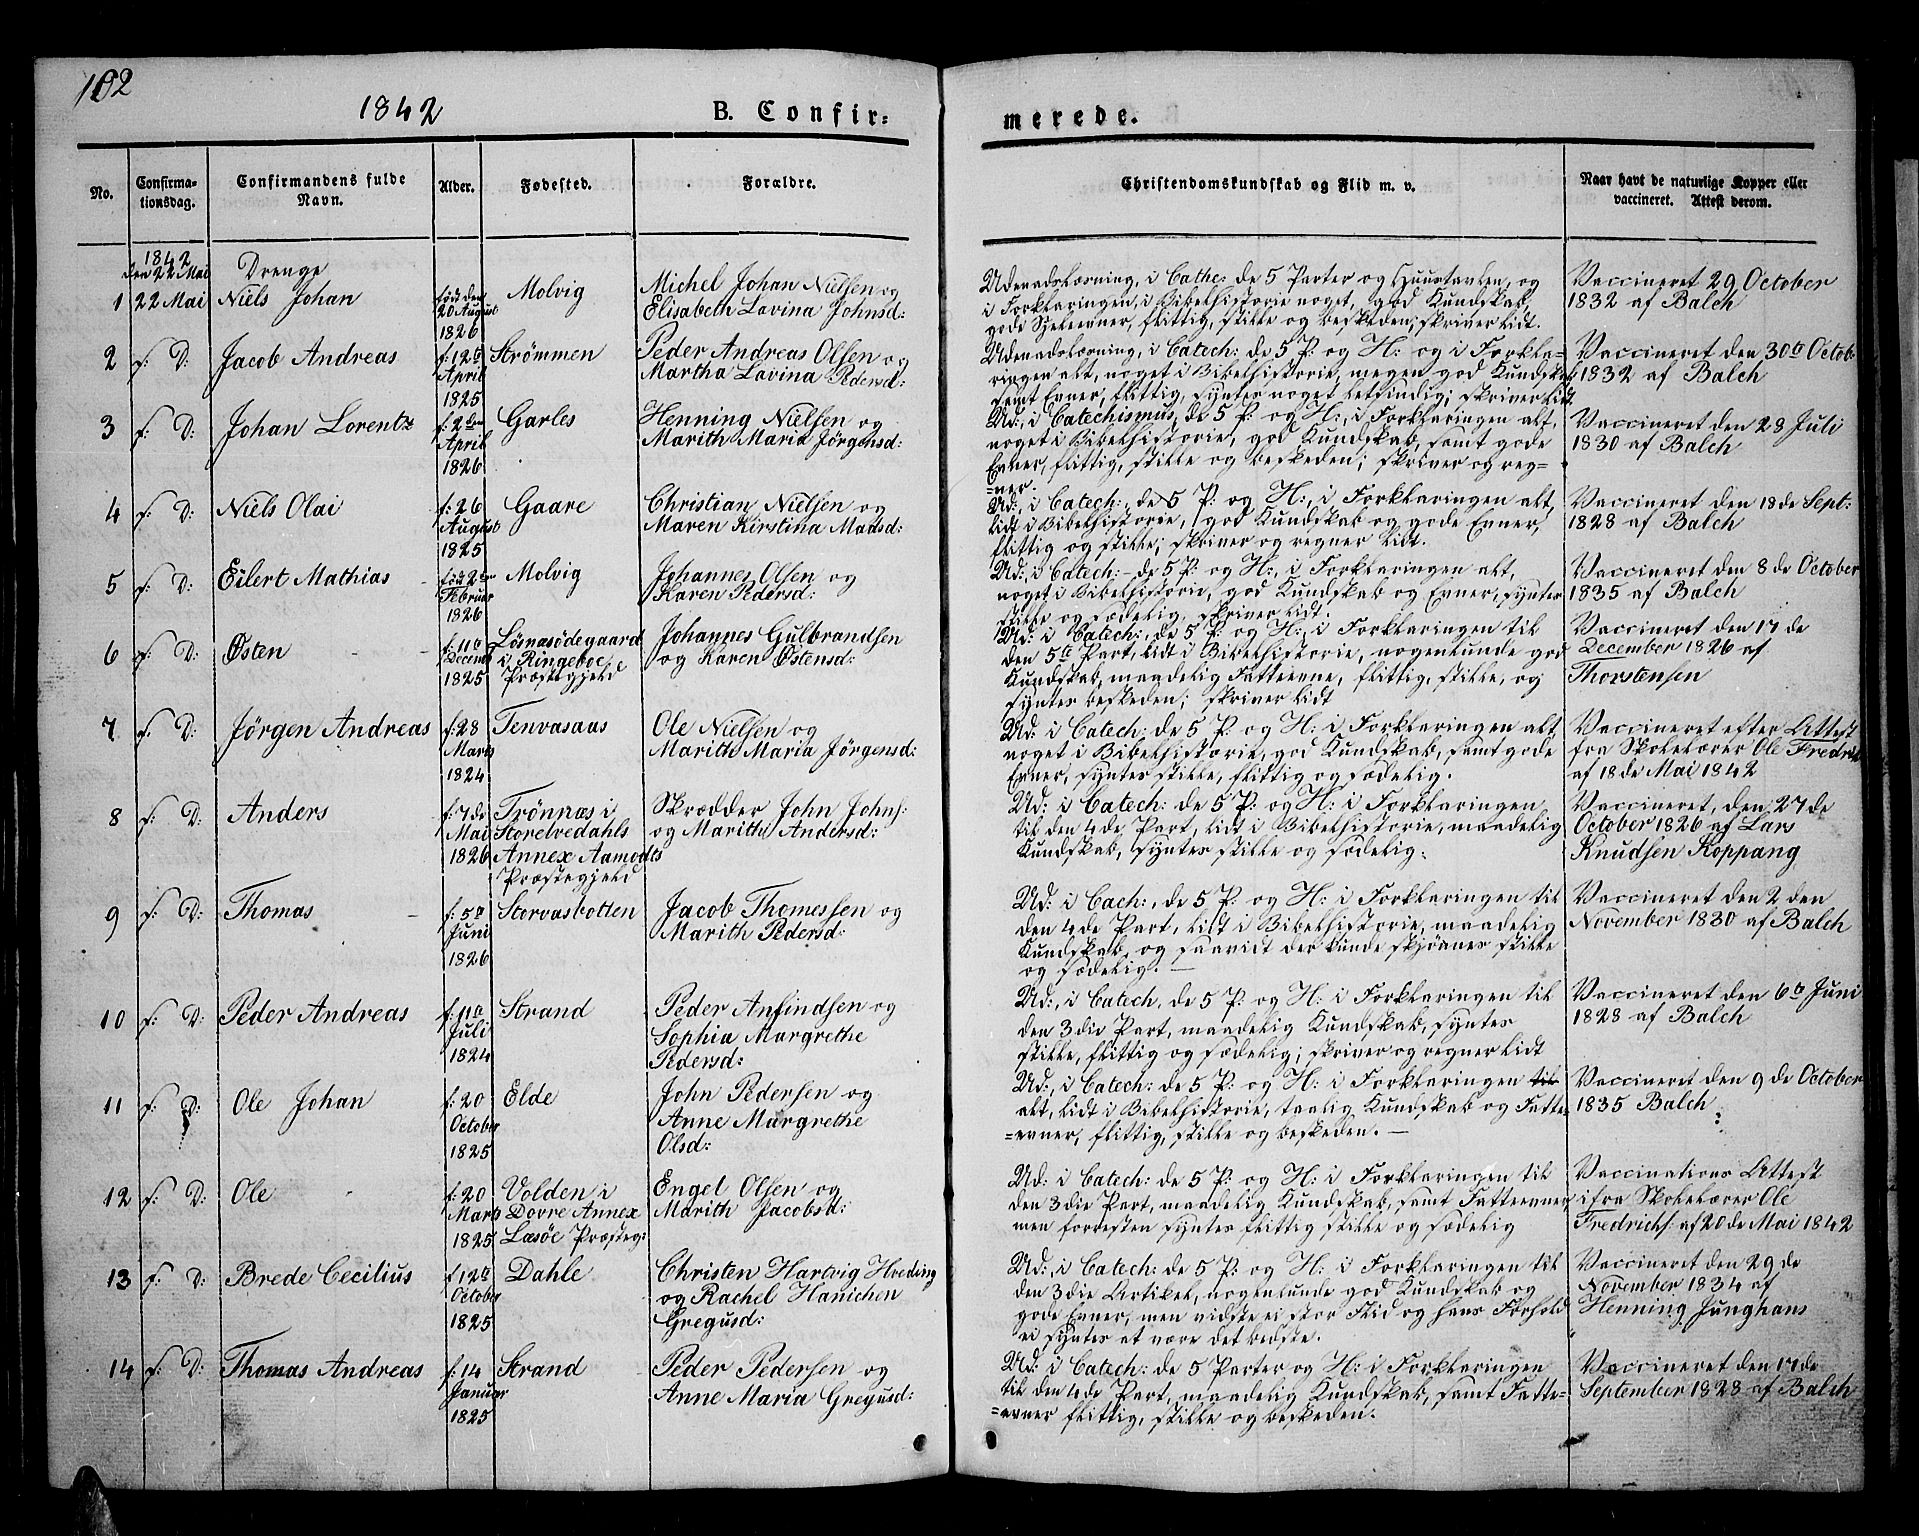 102
1842
B. Confir=
merede.
No.
Confirma-
tionsdag.
Confirmandens fulde
Navn.
Alder.
Fødested.
Forældre.
Christendomskundskab og Flid m. v.
Naar havt de naturlige Kopper eller
vaccineret. Attest derom.
1842
den 22 Mai
Drenge
1 22 Mai Niels Johan
født den
20 August
1826
Molvig
Michel Johan Nielsen og
Elisabeth Lovina Johnsd:
Udenadslæsning, i Cathe: de 5 Parter og Huustavlen, og
i Forklaringen, i Bibelhistorie noget, god Kundskab,
gode Sjeleevner, flittig, stille og beskeden; skriver lidt.
Vaccineret 29 October
1832 af Balch
2 f. D: Jacob Andreas
f: 12te
April
1825
Strömmen
Peder Andreas Olsen og
Martha Lovina Pedersd:
Udenadslæsning, i Catech: de 5 P: og H: og i Forkla-
ringen alt, noget i Bibelhistorie, megen god Kundskab
samt Evner, flittig, syntes noget letsindig; skriver lidt
Vaccineret den 30te Octob
1832 af Balch
3 f. D: Johan Lorentz
f: 2den
April
1826
Garles
Henning Nielsen og
Marith Maria Jörgensd:
Ud:, i Catechismus, de 5 P: og H:, i Forklaringen alt,
noget i Bibelhistorie, god Kundskab, samt gode
Evner, flittig, stille og beskeden; skriver og reg-
=ner.
Vaccineret den 28 Juli
1830 af Balch
4 f. D: Niels Olai
f: 26
August
1825
Gaare
Christian Nielsen og
Maren Kirstina Madsd:
Ud:, i Catech:, de 5 P: og H:, i Forklaringen alt,
lidt i Bibelhistorie, god Kundskab og gode Evner,
flittig og stille; skriver og regner lidt.
Vaccineret den 18de Sept:
1828 af Balch
5 f. D: Eilert Mathias
født 2den
Februar
1826
Molvig
Johannes Olsen og
Karen Pedersd:
Ud:, i Catech:- de 5 P: og H:, i Forklaringen alt,
noget i Bibelhistorie, god Kundskab og Evner, syntes
stille og sædelig, skriver lidt.
Vaccineret den 8 de October
1835 af Balch
6 f. D: Østen
f: 11te
Decemb
1825
Lösnasödegaard
i Ringeboe
Præstegjeld
Johannes Gulbrandsen
og Karen Östensd:
Ud: i Catech:, de 5 P: og H:, i Forklaringen til
den 5te Part, lidt i Bibelhistorie, nogenlunde god
Kundskab, maadelig Fatteevne, flittig, stille, og
syntes beskeden; skriver lidt
Vaccineret den 17 de
December 1826 af
Thorstensen
7 f. D: Jörgen Andreas
f: 28
Marts
1824
Tenvasaas
Ole Nielsen og
Marith Maria Jörgensd:
Ud: i Catech: de 5 P: og H: i Forklaringen alt
noget i Bibelhistorie, god Kundskab, samt gode
Evner, syntes stille, flittig og sædelig.
Vaccineret efter Attest
fra Skolelærer Ole Fredrik
af 18de Mai 1842
8 f. D: Anders
f: 7 de
Mai
1826
Trönnæs i
Storelvedahls
Annex Aamodts
Præstegjeld
Skrædder John Johns:
og Marith Andersd:
Ud: i Catech: de 5 P: og H: i Forklaringen
til den 4de Part, lidt i Bibelhistorie, maadelig
Kundskab, syntes stille og sædelig:
Vaccineret, den 27 de
October 1826 af Lars
Knudsen Koppang
9 f. D: Thomas
f: 5te
Juni
1826
Storvasbotten
Jacob Thomessen og
Marith Pedersd:
Ud: i Cach:, de 5 P: og H: i Forklaringen til
den 4de Part, lidt i Bibelhistorie, maadelig
Kundskab, og saavidt der kunde skjönnes stille
og sædelig. —
Vaccineret den 2 den
November 1830 af Balch
10 f. D: Peder Andreas
f: 11te
Juli
1824
Strand
Peder Anfindsen og
Sophia Margrethe
Pedersd:
Ud:, i Catech, de 5 P: og H: i Forklaringen til
den 3die Part, maadelig Kundskab, syntes
stille, flittig og sædelig; skriver og regner lidt
Vaccineret den 6te Juni
1828 af Balch
11 f. D: Ole Johan
f: 20
October
1825
Elde
John Pedersen og
Anne Margrethe
Olsd:
Ud:, i Catech: de 5 P: og H: i Forklaringen til
alt, lidt i Bibelhistorie, taalig Kundskab og Fatte-
=evner, flittig, stille og beskeden. —
Vaccineret den 9 de October
1835 Balch
12 f. D: Ole
f: 20
Marts
1825
Volden i
Dovre Annex
Læsöe Præsteg:
Engel Olsen og
Marith Jacobsd:
Ud: i Catech: de 5 P: og H: i Forklaringen til
den 3 die Part, maadelig Kundskab, samt Fatteevner,
men foresten syntes flittig stille og sædelig
Vaccinations Attest
ifra Skolelærer Ole
Fredrichs: af 20 de Mai 1842
13 f. D: Brede Cecilius
f 12te
October
1825
Dahle
Christen Hartvig Hveding
og Rachel Hanichen
Gregusd:
Ud:, i Catech: de 5 P: og H: i Forklaringen til
den 3 die Artikel, nogenlunde god Kundskab og
gode Evner, men vidste ei stor Flid og hans Forhold
ei syntes at være det bedste.
Vaccineret den 29 de
November 1834 af
Henning Junghans
14 f. D: Thomas Andreas
f: 14
Januar
1825
Strand
Peder Pedersen og
Anne Maria Gregusd:
Ud: i Catech: de 5 Parter og H: i Forklaringen
til den 4de Part, maadelig Kundskab, samt Fatte-
=evner flittig, stille og beskeden.
Vaccineret den 17 de
September 1828 af Balch